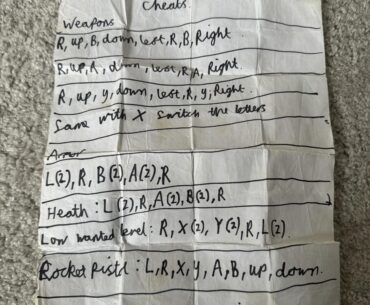 Cheats.
Weapons
R, up, B, down, lest, R, B, Right
R, up, A, down, lest, R, A, Right.
R, up, y, down, lest, R, y, Right.
Same with X switch the letters
L(2), R, B(2), A(2), R
Heath: L(2), R, A(2), B(2), R
Low wanted level: R, X(2), Y(2), R, L(2).
Rocket Pistol: L, R, X, y, A, B, up, down.